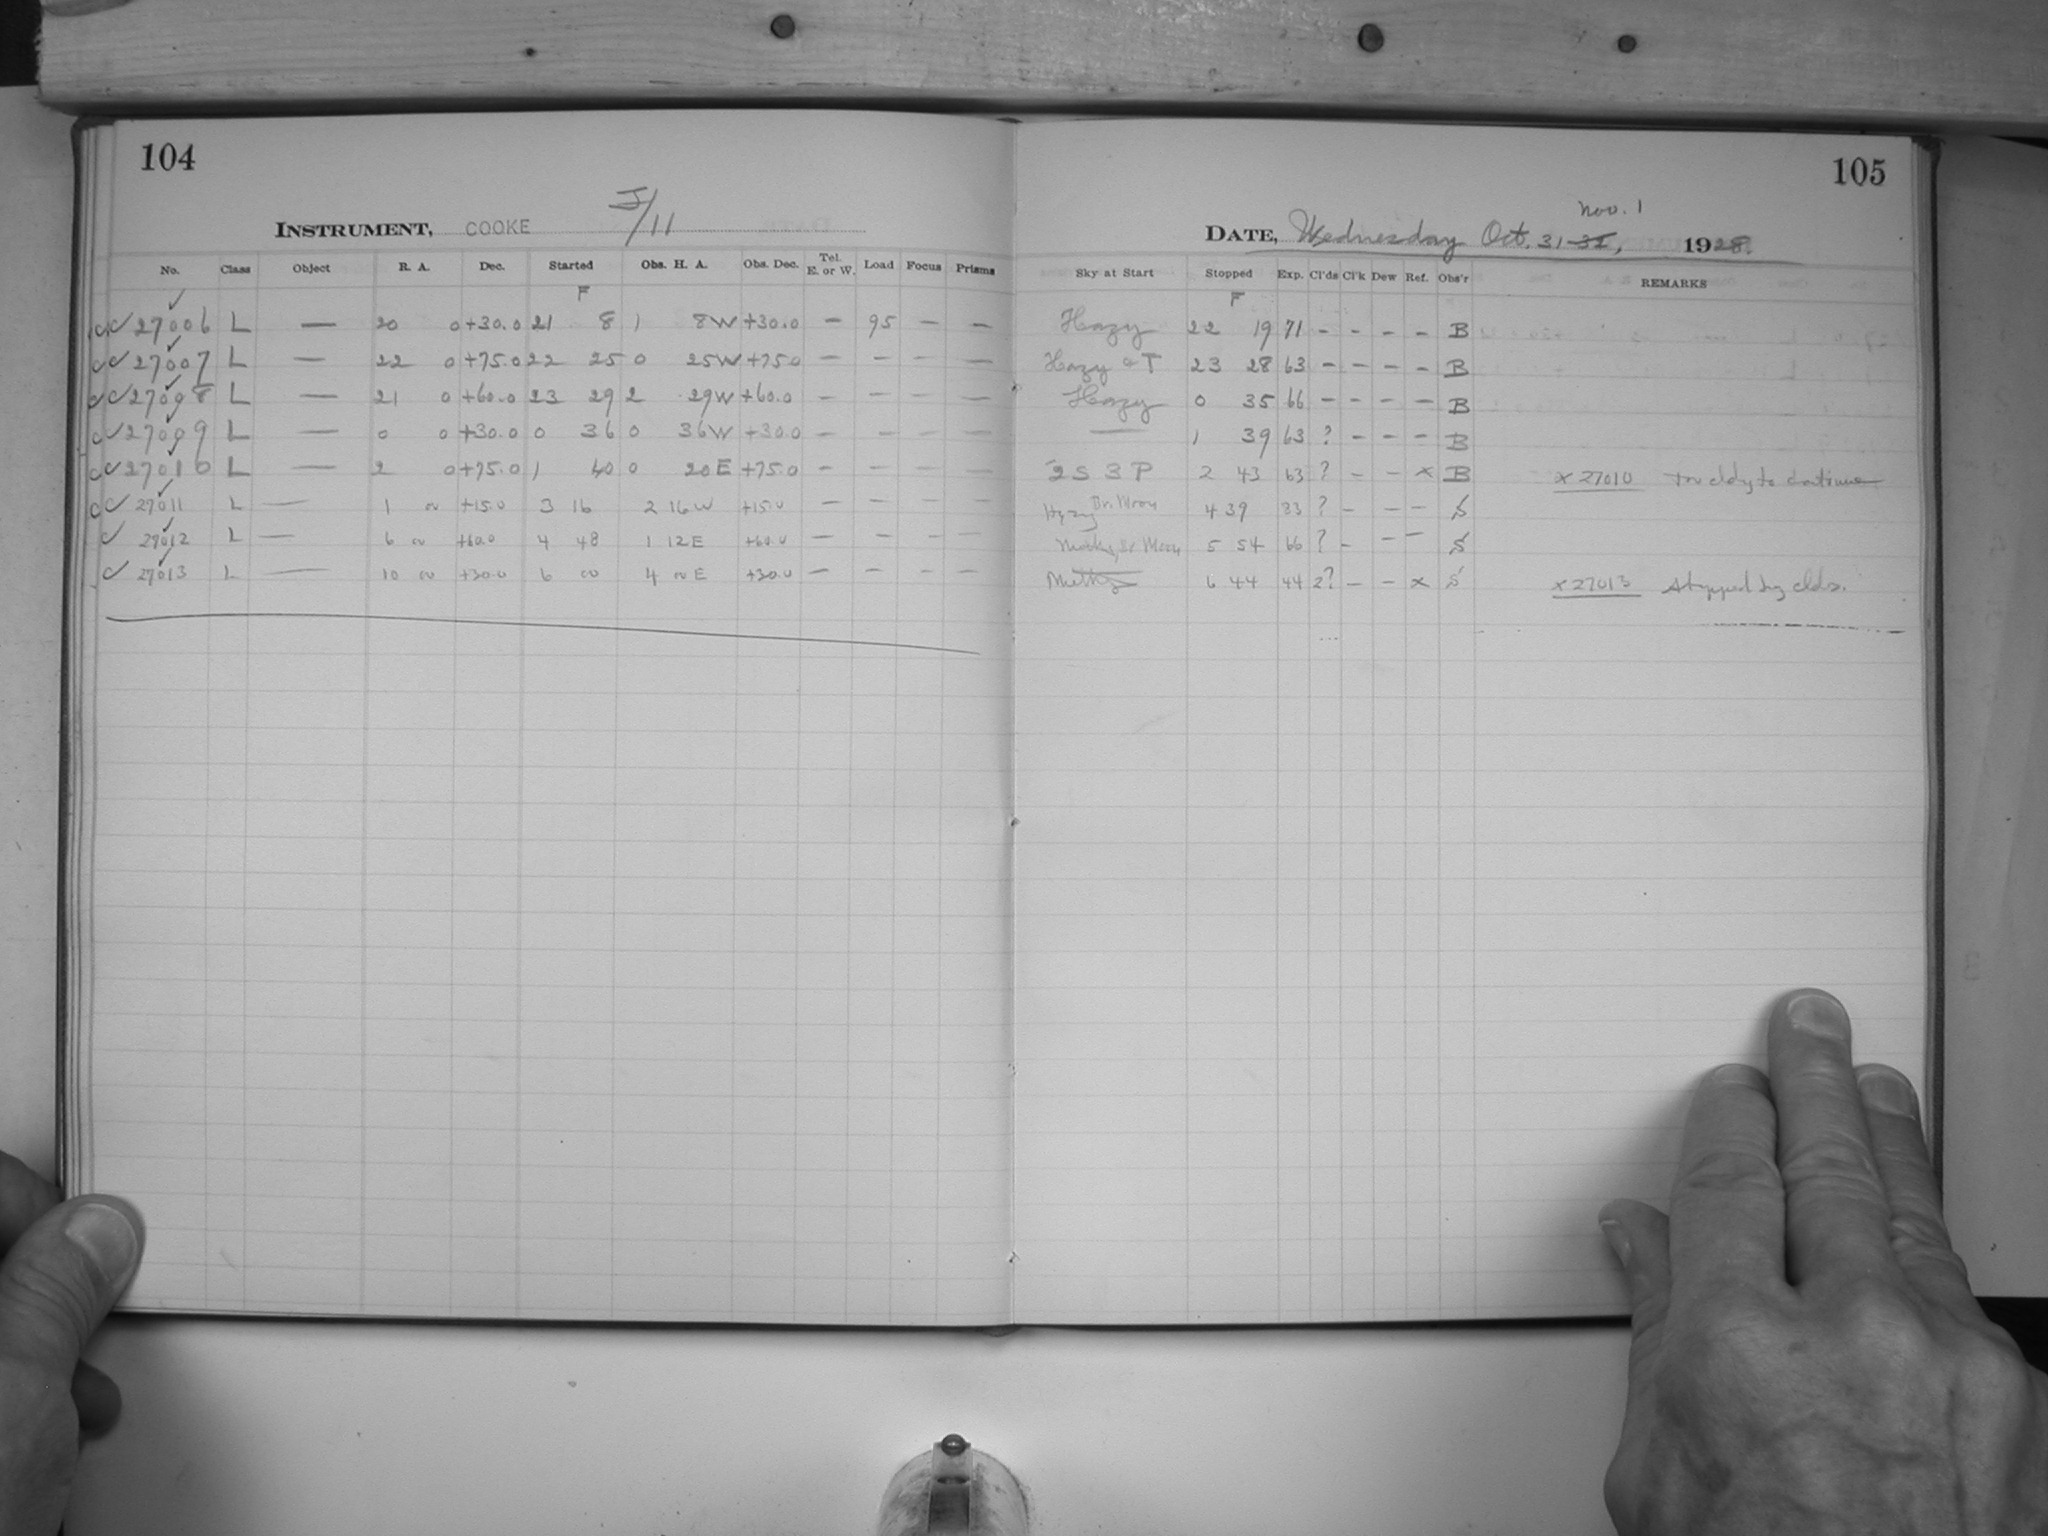 104
J/11
INSTRUMENT, COOKE
No. Class Object R. A. Dec. Started Obs. H. A. Obs. Dec. Tel. E. or W. Load Focus Prisms
F
✓ 27006 L — 20 0 +30.0 21 8 1 8W +30.0 – 95 – –
✓ 27007 L — 22 0 +75.0 22 25 0 25W +75.0 – – – –
✓ 27008 L — 21 0 +60.0 23 29 2 29W +60.0 – – – –
✓ 27009 L — 0 0 +30.0 0 36 0 36W +30.0 – – – –
✓ 27010 L — 2 0 +75.0 1 40 0 20E +75.0 – – – –
✓ 27011 L — 1 00 +15.0 3 16 2 16W +15.0 – – – –
✓ 27012 L — 6 00 +60.0 4 48 1 12E +60.0 – – – –
✓ 27013 L — 10 00 +30.0 6 00 4 00E +30.0 – – – –
105
Nov. 1
DATE, Wednesday Oct. 31-31, 1928.
Sky at Start Stopped Exp. Cl'ds Cl'k Dew Ref. Obs'r REMARKS
F
Hazy 22 19 71 – – – – B
Hazy & T 23 28 63 – – – – B
Hazy 0 35 66 – – – – B
— 1 39 63 ? – – – B
2 S 3 P 2 43 63 ? – – x B x 27010 Too cldy to continue
Hazy Br. Moon 4 39 83 ? – – – S
Br Moon 5 54 66 ? – – – S
6 44 44 2? – – x S x 27013 Stopped by clds.